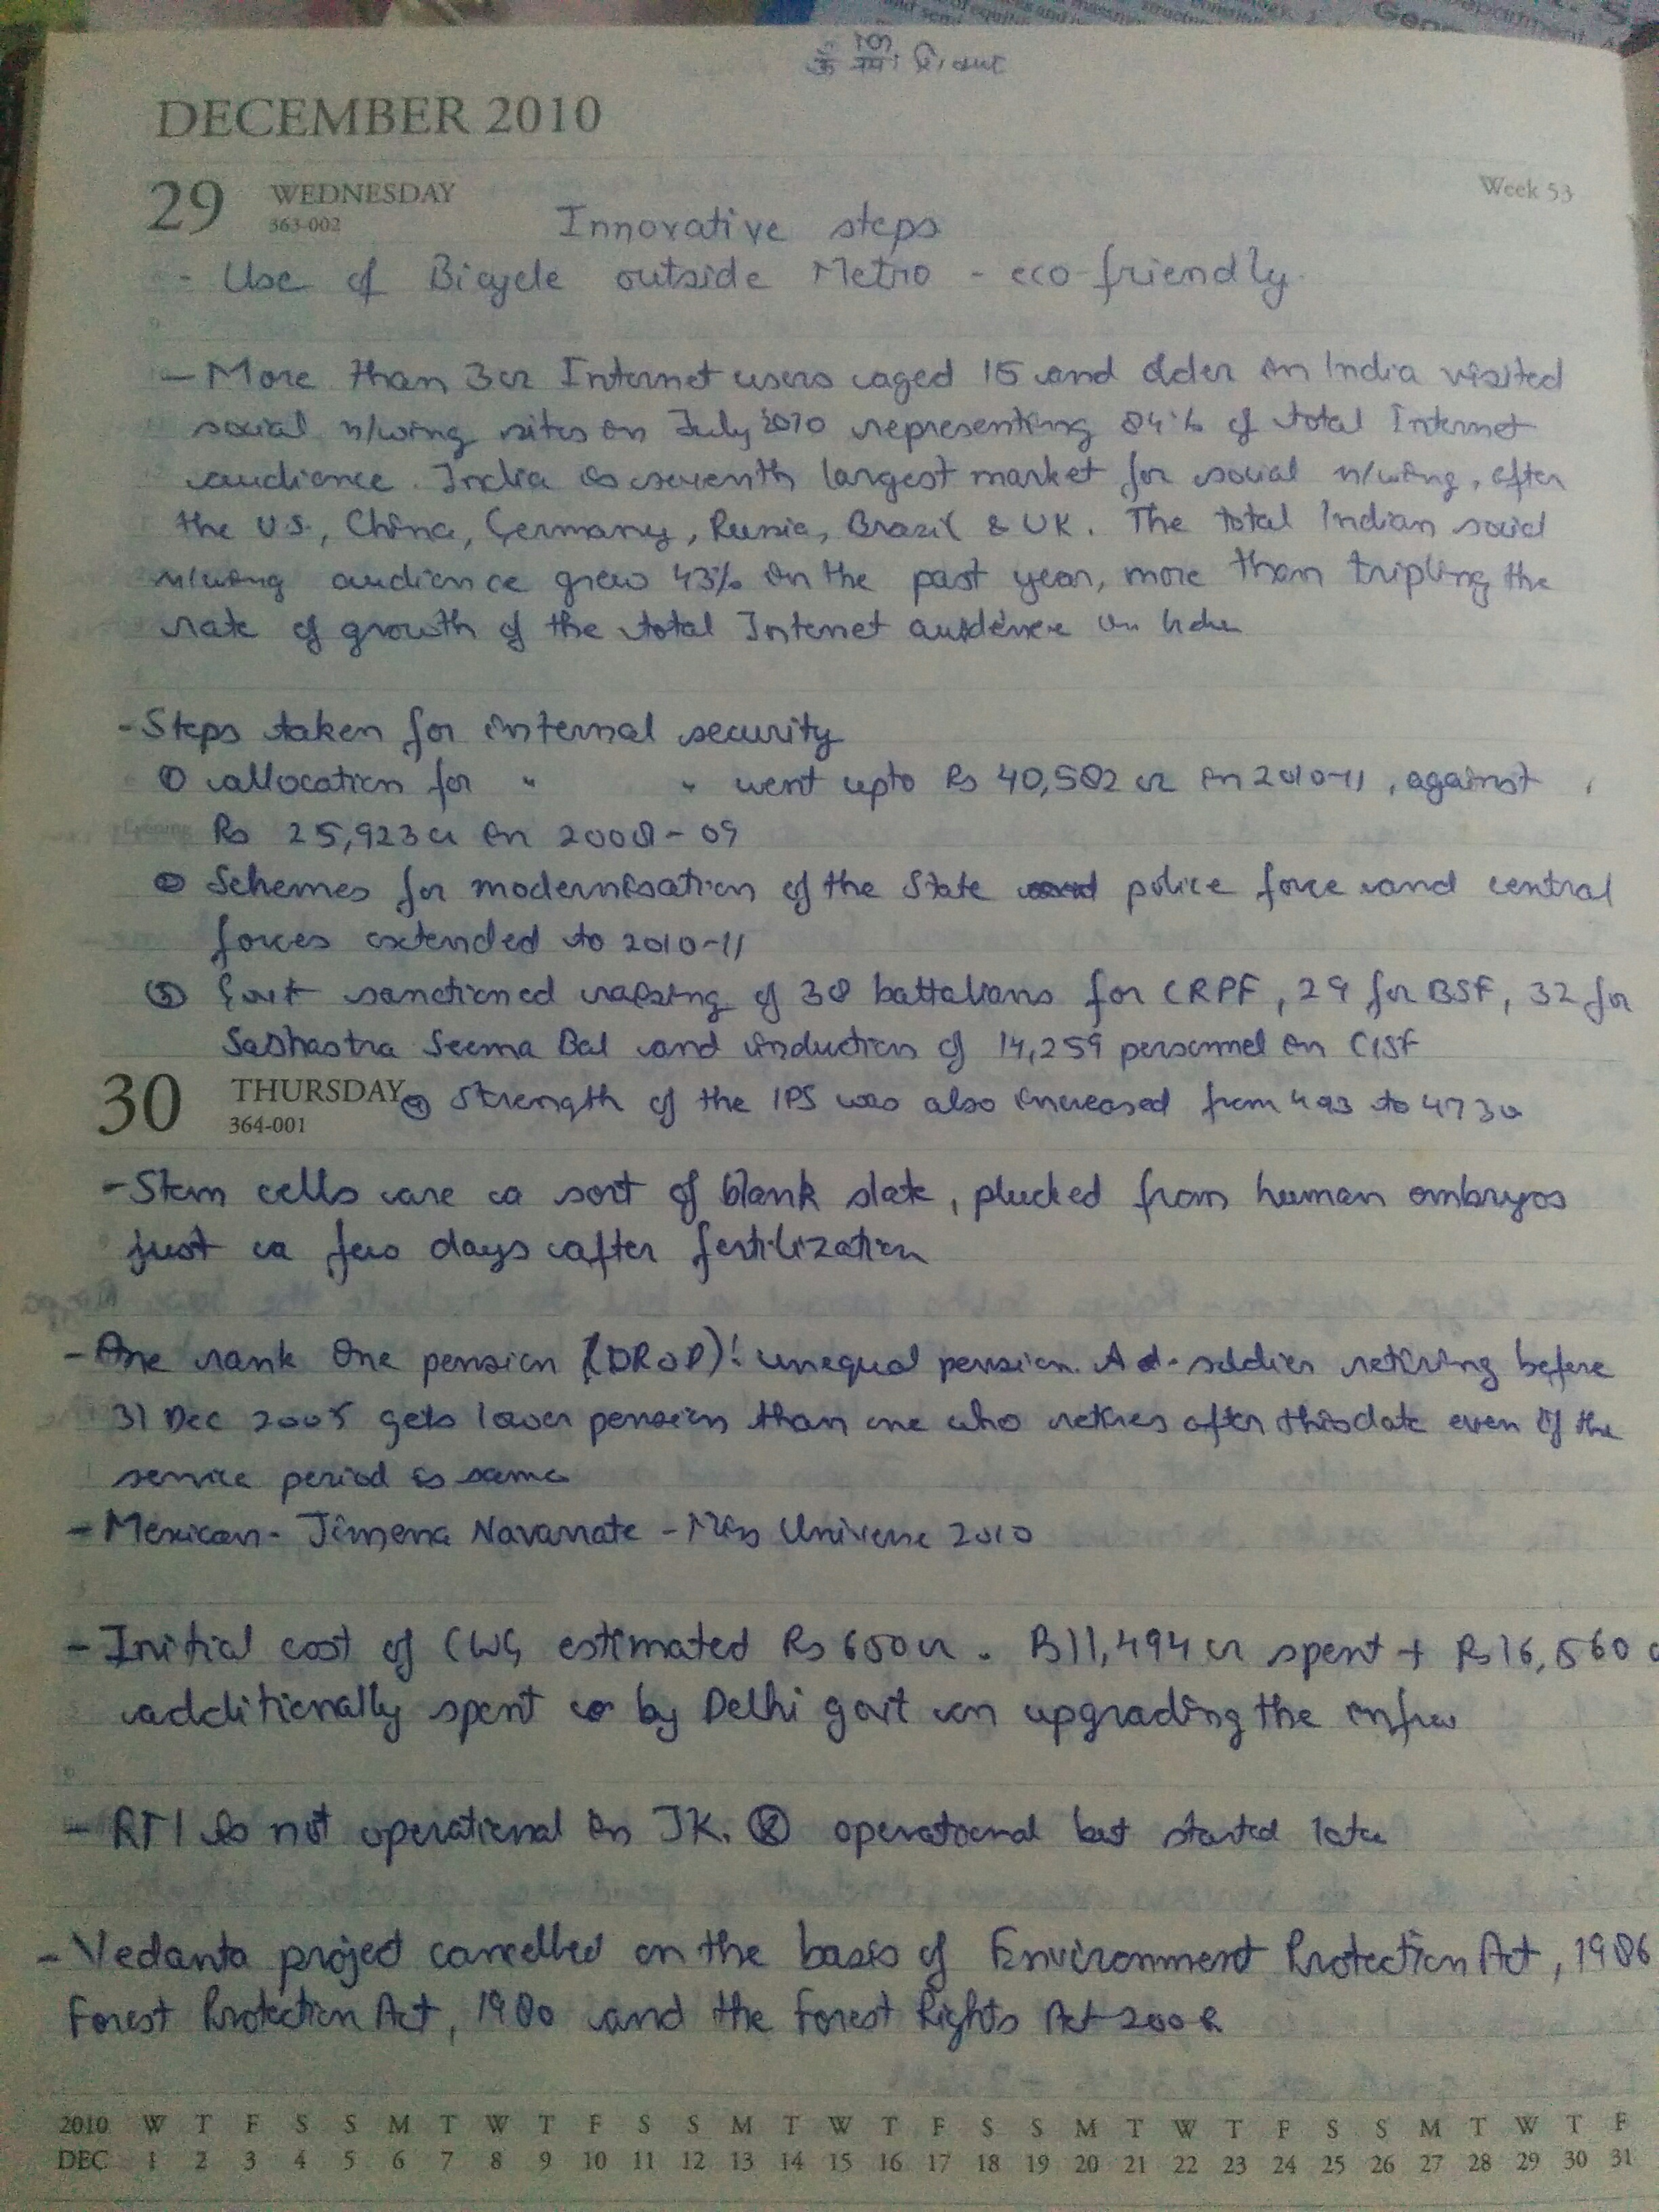 DECEMBER 2010
29 WEDNESDAY
363-002
Week 53
Innovative steps
- Use of Bicycle outside Metro - eco-friendly.
- More than 3cr Internet users aged 15 and older in India visited
social n/wing sites in July 2010 representing 84% of total Internet
audience. India is seventh largest market for social n/wing, after
the U.S., China, Germany, Russia, Brazil & UK. The total Indian social
n/wing audience grew 43% in the past year, more than tripling the
rate of growth of the total Internet audience in India
- Steps taken for internal security
① allocation for " " went upto Rs 40,582 cr in 2010-11, against
Rs 25,923 cr in 2008-09
② Schemes for modernisation of the State police force and central
forces extended to 2010-11
③ Govt sanctioned raising of 38 battalians for CRPF, 29 for BSF, 32 for
Sashastra Seema Bal and induction of 14,259 personnel in CISF
30 THURSDAY
364-001
④ Strength of the IPS was also increased from to 4730
- Stem cells are a sort of blank slate, plucked from human embryos
just a few days after fertilization
- One rank One pension (OROP): unequal pension. A soldier retiring before
31 Dec 2005 gets lower pension than one who retires after this date even if the
service period is same
- Mexican - Jimena Navarrate - Miss Universe 2010
- Initial cost of CWG estimated Rs 650 cr. Rs 11,494 cr spent + Rs 16,560 c
additionally spent by Delhi govt on upgrading the infra
- RTI is not operational in JK. ⊗ operational but started late
- Vedanta project cancelled on the basis of Environment Protection Act, 1986
Forest Protection Act, 1980 and the Forest Rights Act
2010 W T F S S M T W T F S S M T W T F S S M T W T F S S M T W T F
DEC 1 2 3 4 5 6 7 8 9 10 11 12 13 14 15 16 17 18 19 20 21 22 23 24 25 26 27 28 29 30 31